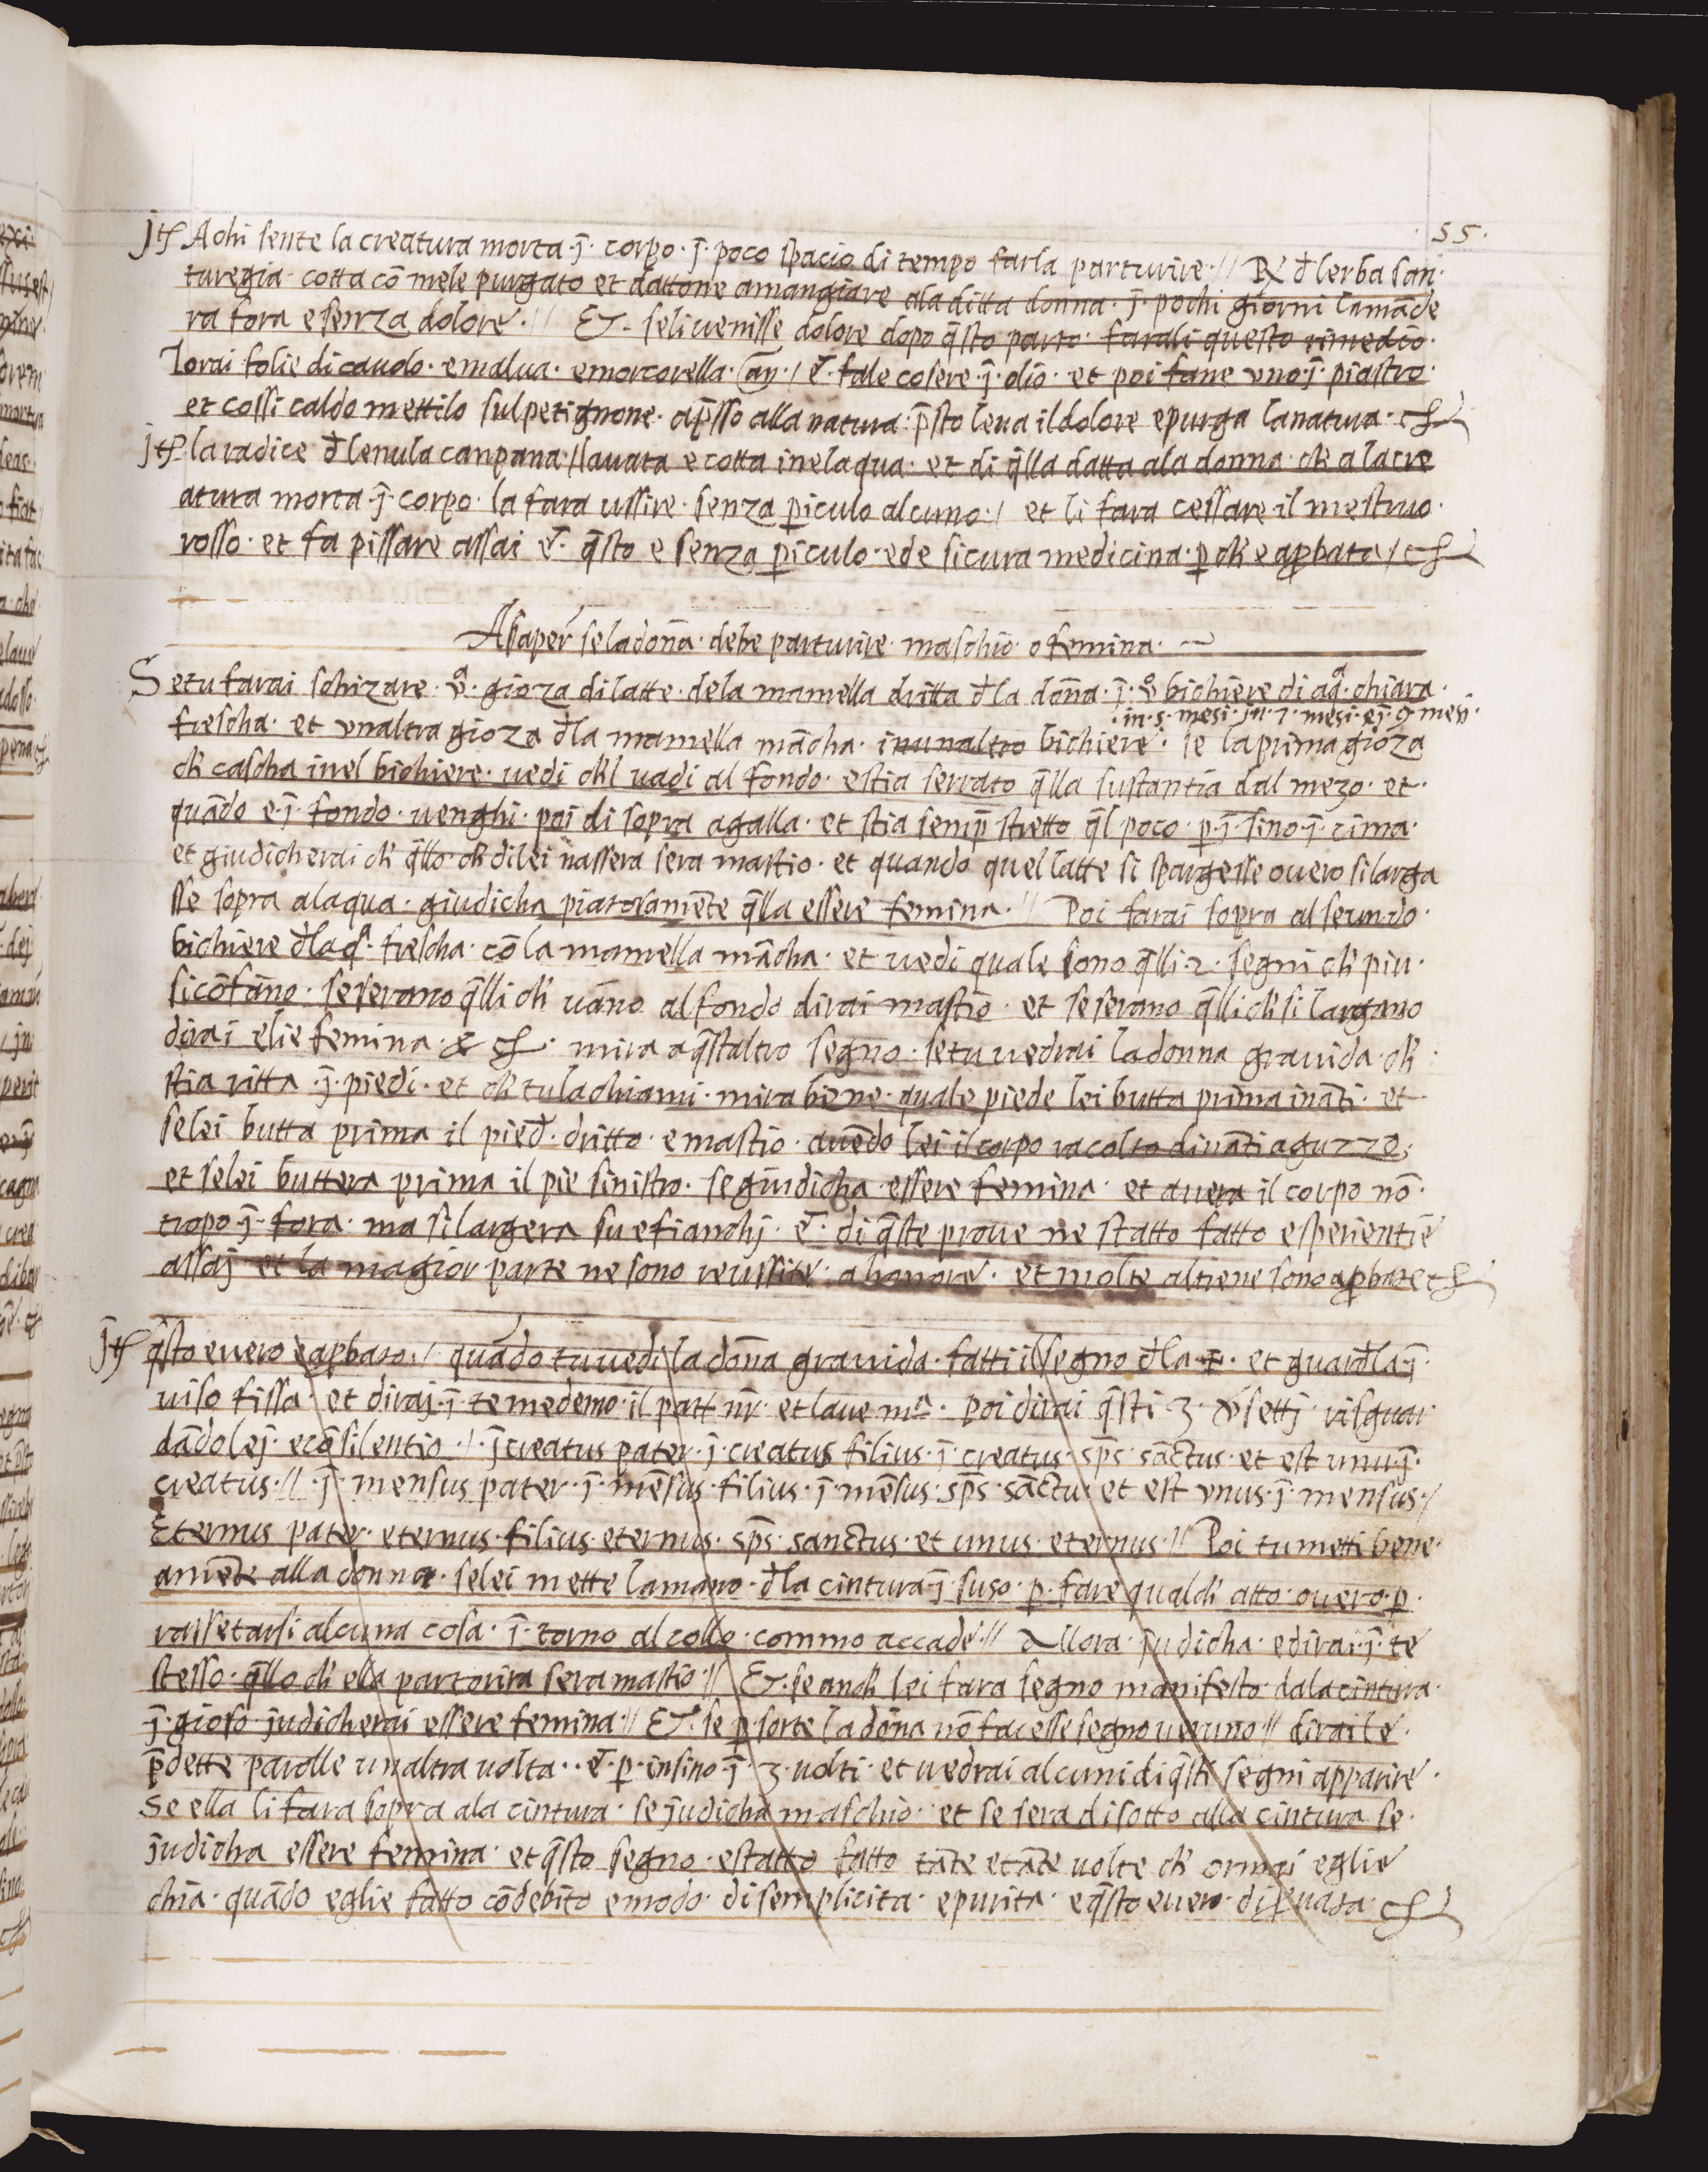 ·55·
jtꝭ A chi sente la creatura morta ·j̄· corpo · j̄· poco spacio di tempo farla parturire·// ℞ đlerba san·
turegia· cotta cō mele purgato et dattone amangiare ala ditta donna· j̄· pochi giorni lamāde
ra fora e senza dolore·// Et· seli uenisse dolore dopo q̄sto parto· farali questo rimedio·
Torai folie di caudo· e malua· e morcorella· añ·/ et· fale cosere ·j̄· olio· et poi fane vno ·j̄· piastro·
et cossi caldo mettilo sul petignone· ap̄sso alla natura· p̄sto leua il dolore e purga la natura·
jtꝭ la radice đlenula canpana·// lauata e cotta inelaqua· et di q̄lla datta ala donna· ch̄ a la cre
atura morta ·j̄· corpo· la fara ussire· senza piculo alcuno·/ et li fara cessare il mestruo·
rosso· et fa pissare assai et· q̄sto e senza piculo· ede sicura medicina· p ch̄ e apbata/
A saper se la doña· debe parturire· maschio· o femina·
Se tu farai schizare · vᵃ· gioza di latte· dela mamella dritta đla doña· j̄· vᵒ bichiere di aqᵃ chiara·
·in·5·mesi· jn·7·mesi· ej̄·9 mesi·
frescha· et vnaltra gioza đla mamella mācha· inunaltro bichiere· se la prima gioza
ch̄ cascha inel bichiere· uedi ch̄l uadi al fondo· e stia serrato q̄lla sustantia dal mezo· et·
quādo e ·j̄· fondo· uenghi· poi di sopra a galla· et stia semp̄ stretto q̄l poco· p ·j̄· sino ·j̄· cima·
et giudicherai ch̄ q̄llo ch̄ di lei nassera sera mastio· et quando quel latte si spargesse ouero si larga
sse sopra alaqua· giudicha piatosamēte q̄lla essere femina·// Poi farai sopra al secundo·
bichiere đlaqᵃ· frescha· cō la mamella mācha· et uedi quale sono q̄lli·2· segni ch̄ piu·
si cōfāno· se serano q̄lli ch̄ uāno al fondo dirai mastio· et se serano q̄lli ch̄ si largano
dirai elie femina· & mira a q̄staltro segno· se tu uedrai la donna grauida· ch̄
stia ritta ·j̄· piedi· et ch̄ tu la chiami· mira bene· quale piede lei butta prima ināti· et
se lei butta prima il pieđ· dritto· e mastio· auēdo lei il corpo racolto dināti aguzzo·
et se lei buttera prima il pie sinistro· se giudicha essere femina· et auera il corpo nō·
tropo ·j̄· fora· ma si largera su e fianchj· et· di q̄ste proue ne statto fatto esperientie
assaj et la magior parte ne sono reussite· a honore· et molte altre ne sono apbate
jtꝭ q̄sto e uero e apbato·/ quādo tu uedi la doña grauida· fatti il segno đla ✝· et guarđla ·j̄·
uiso fissa· et diraj ·j̄· te medemo· il patt nr̄· et laue mᵃ· poi dirai q̄sti ·3· ꝟsettj risguar
dādolej· e cō silentio·/· j̄creatus pater· j̄·creatus filius· j̄· creatus· sp̄s sāctus· et est unu· j̄·
creatus·// · j̄· mensus pater· j̄· mēsus· filius· j̄· mēsus· sp̄s· sāctu· et est vnus· j̄· mensus·/
Eternus pater· eternus· filius· eternus· sp̄s· sanctus· et unus· eternus·// Poi tu metti bene·
amēte alla donna· se lei mette la mano· đla cintura ·j̄· suso· p· fare qualch̄ atto· ouero· p·
rassetarsi alcuna cosa· j̄· torno al collo· commo accade·// Allora· judicha· e dirai ·j̄· te
stesso· q̄llo ch̄ ella partorira sera mastio·// Et· se anch̄ lei fara segno manifesto· dala cintura·
j̄· gioso· judicherai essere femina·// Et· se p sorte la doña nō facesse segno ueruno// diraile·
p̄dette parolle unaltra uolta·· et· p· insino ·j̄· 3· uolti· et uedrai alcuni di q̄sti segni apparire·
Se ella li fara sopra ala cintura· se judicha maschio· et se sera di sotto alla cintura se·
judicha essere femina· et q̄sto segno· e statto fatto tāte e tāte uolte ch̄ ormai eglie
chia· quādo eglie fatto cō debito e modo· di semplicita· e purita· e q̄sto e uero·